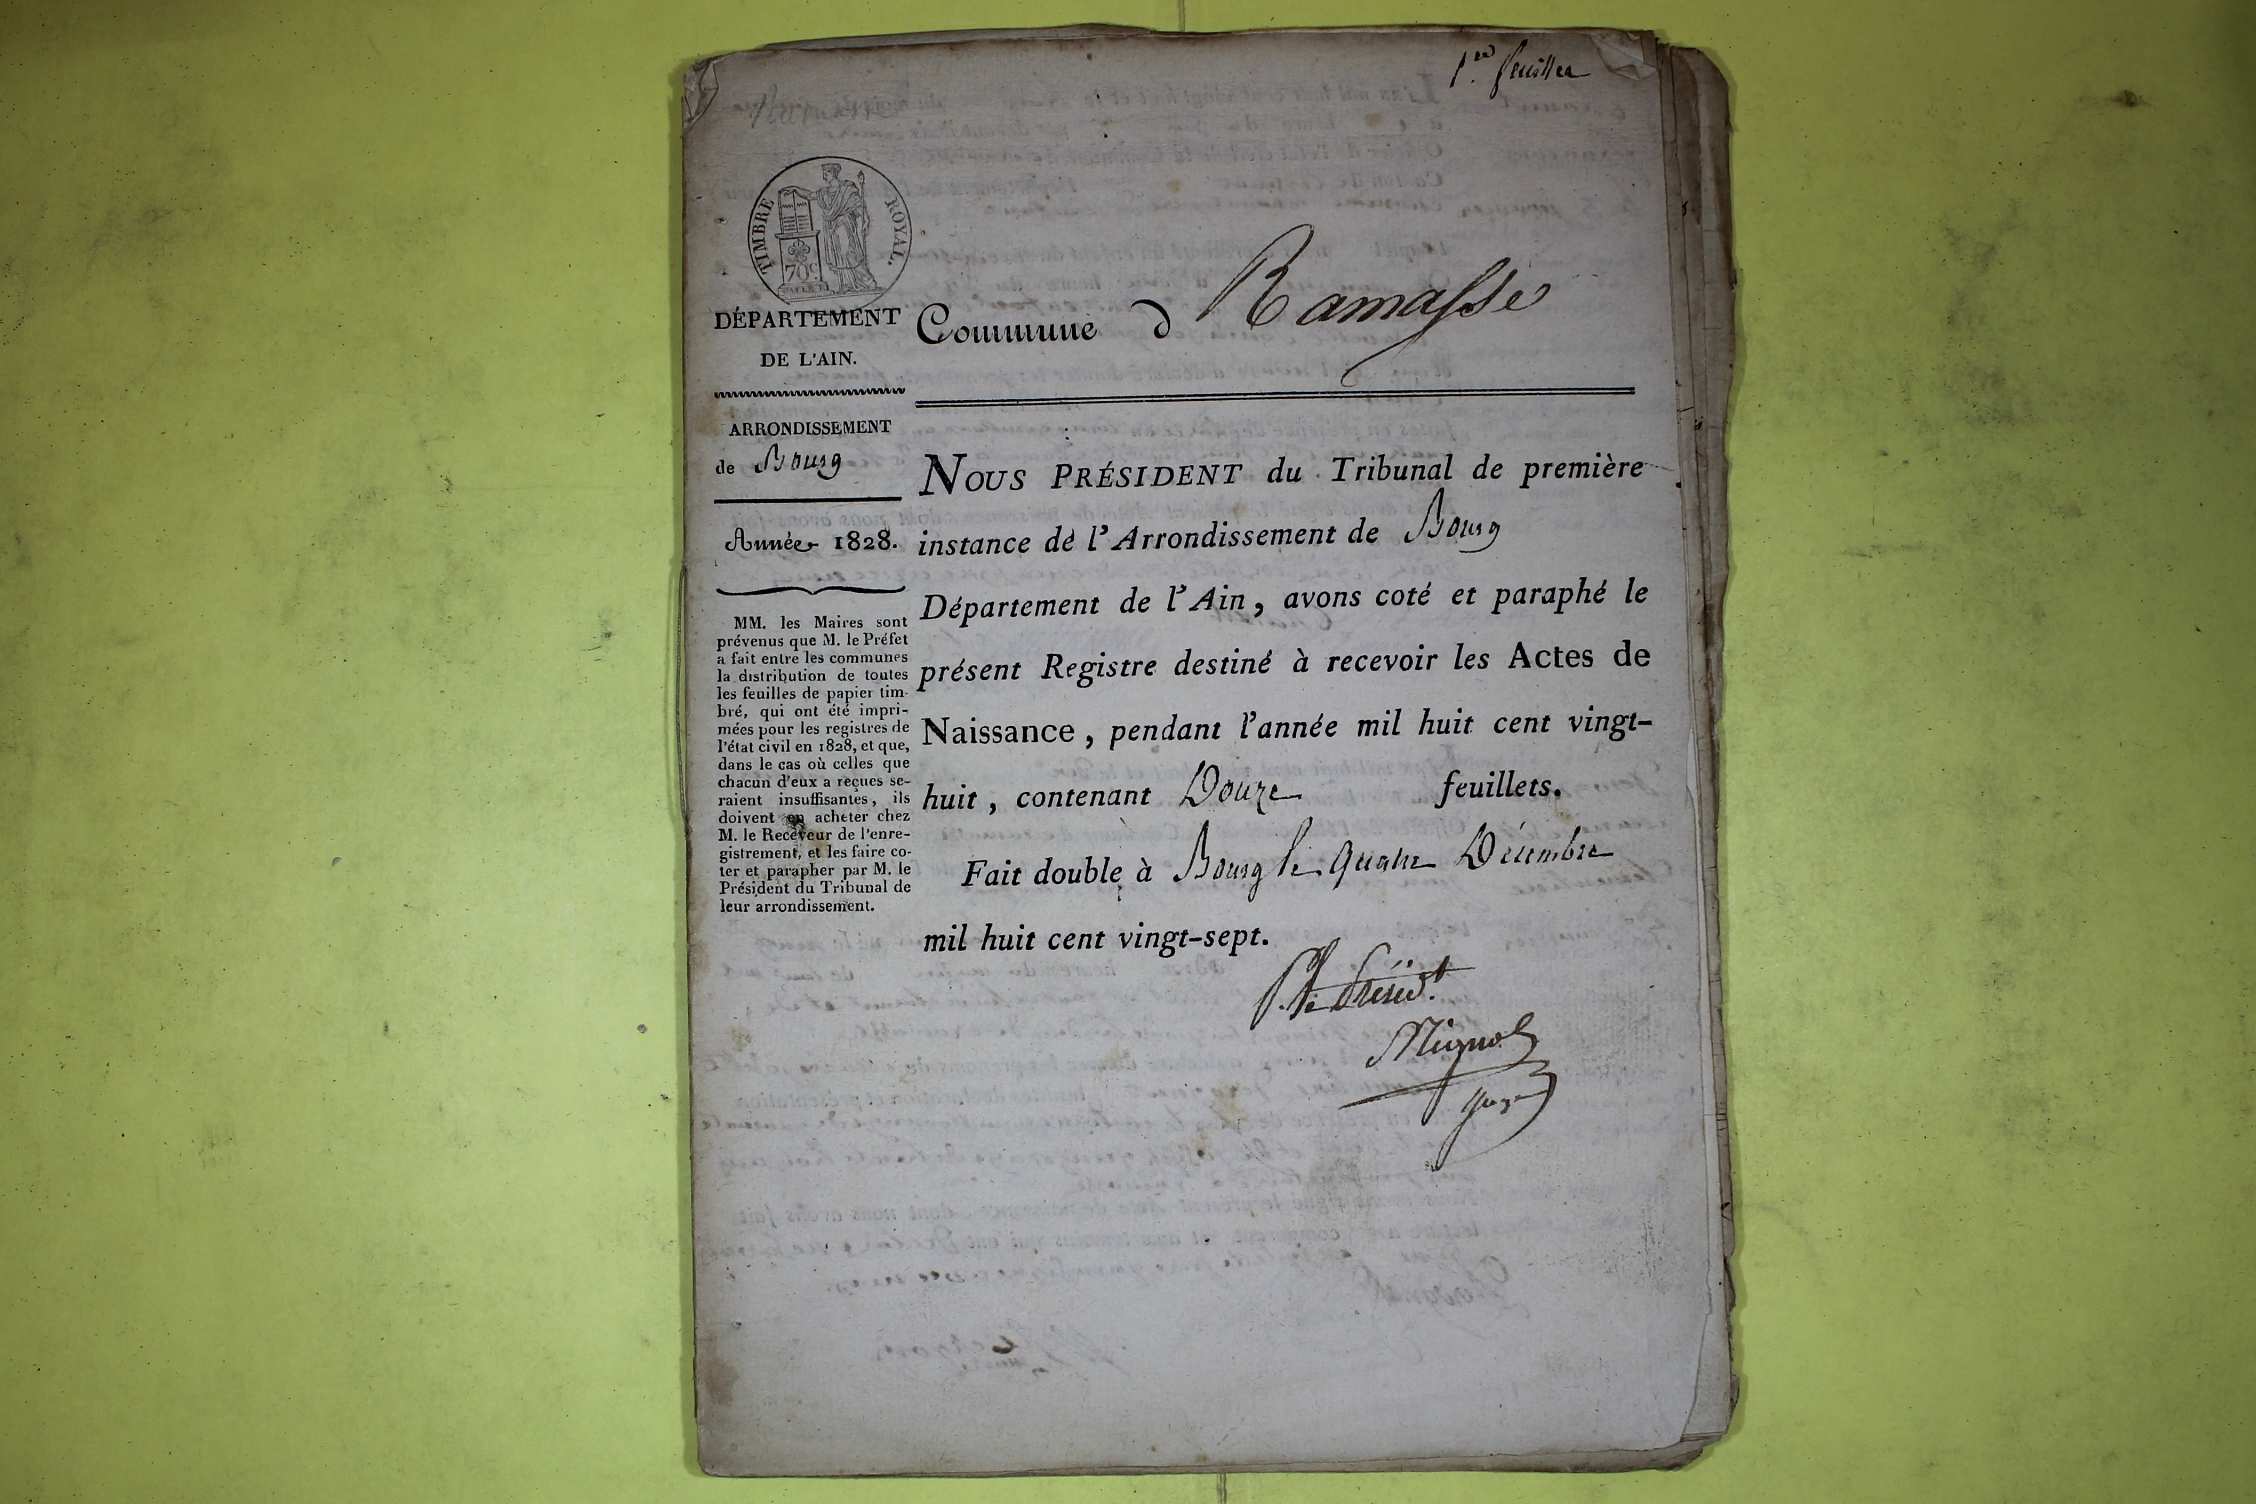 1.re feuillet
TIMBRE ROYAL.
70c
DÉPARTEMENT
DE L'AIN.
Commune d Ramasse
ARRONDISSEMENT
de Bourg
Année 1828.
MM. les Maires sont
prévenus que M. le Préfet
a fait entre les communes
la distribution de toutes
les feuilles de papier tim-
bré, qui ont été impri-
mées pour les registres de
l'état civil en 1828, et que,
dans le cas où celles que
chacun d'eux a reçues se-
raient insuffisantes, ils
doivent en acheter chez
M. le Receveur de l'enre-
gistrement, et les faire co-
ter et parapher par M. le
Président du Tribunal de
leur arrondissement.
NOUS PRÉSIDENT du Tribunal de première
instance de l'Arrondissement de Bourg
Département de l'Ain, avons coté et paraphé le
présent Registre destiné à recevoir les Actes de
Naissance, pendant l'année mil huit cent vingt-
huit, contenant Douze feuillets.
Fait double à Bourg le quatre Décembre
mil huit cent vingt-sept.
P. le Présid.t
juge